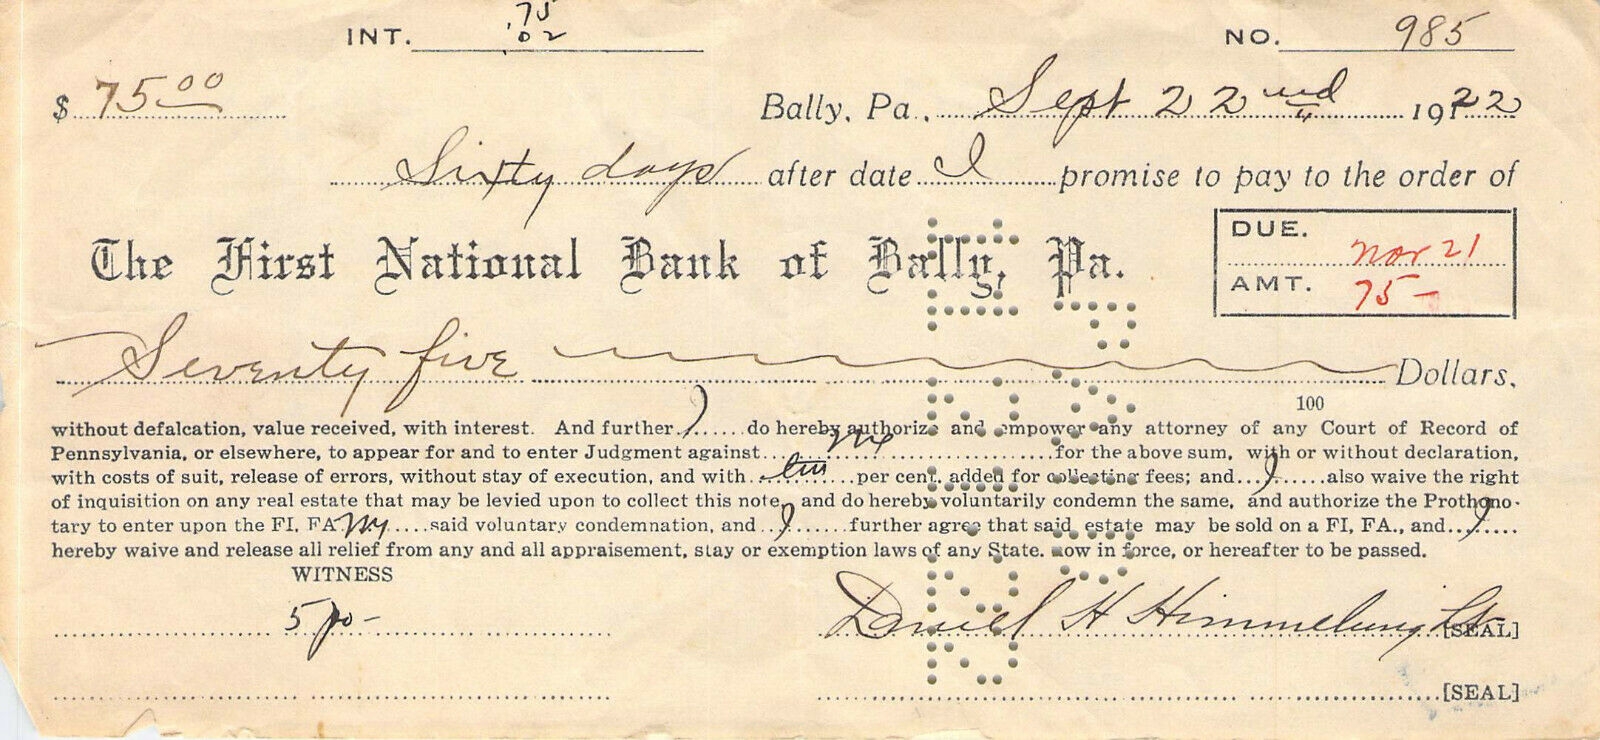 INT. .75
.02
NO. 985
$ 75.00
Bally, Pa., Sept 22nd 1922
Sixty days after date I promise to pay to the order of
The First National Bank of Bally, Pa.
DUE. Nov 21
AMT. 75-
Seventy five Dollars.
100
without defalcation, value received, with interest. And further I do hereby authorize and empower any attorney of any Court of Record of
Pennsylvania, or elsewhere, to appear for and to enter Judgment against me for the above sum, with or without declaration,
with costs of suit, release of errors, without stay of execution, and with per cent. added for collecting fees; and I also waive the right
of inquisition on any real estate that may be levied upon to collect this note, and do hereby voluntarily condemn the same, and authorize the Prothono-
tary to enter upon the FI, FA my said voluntary condemnation, and I further agree that said estate may be sold on a FI, FA., and I
hereby waive and release all relief from any and all appraisement, stay or exemption laws of any State. now in force, or hereafter to be passed.
WITNESS
Daniel H [SEAL]
[SEAL]